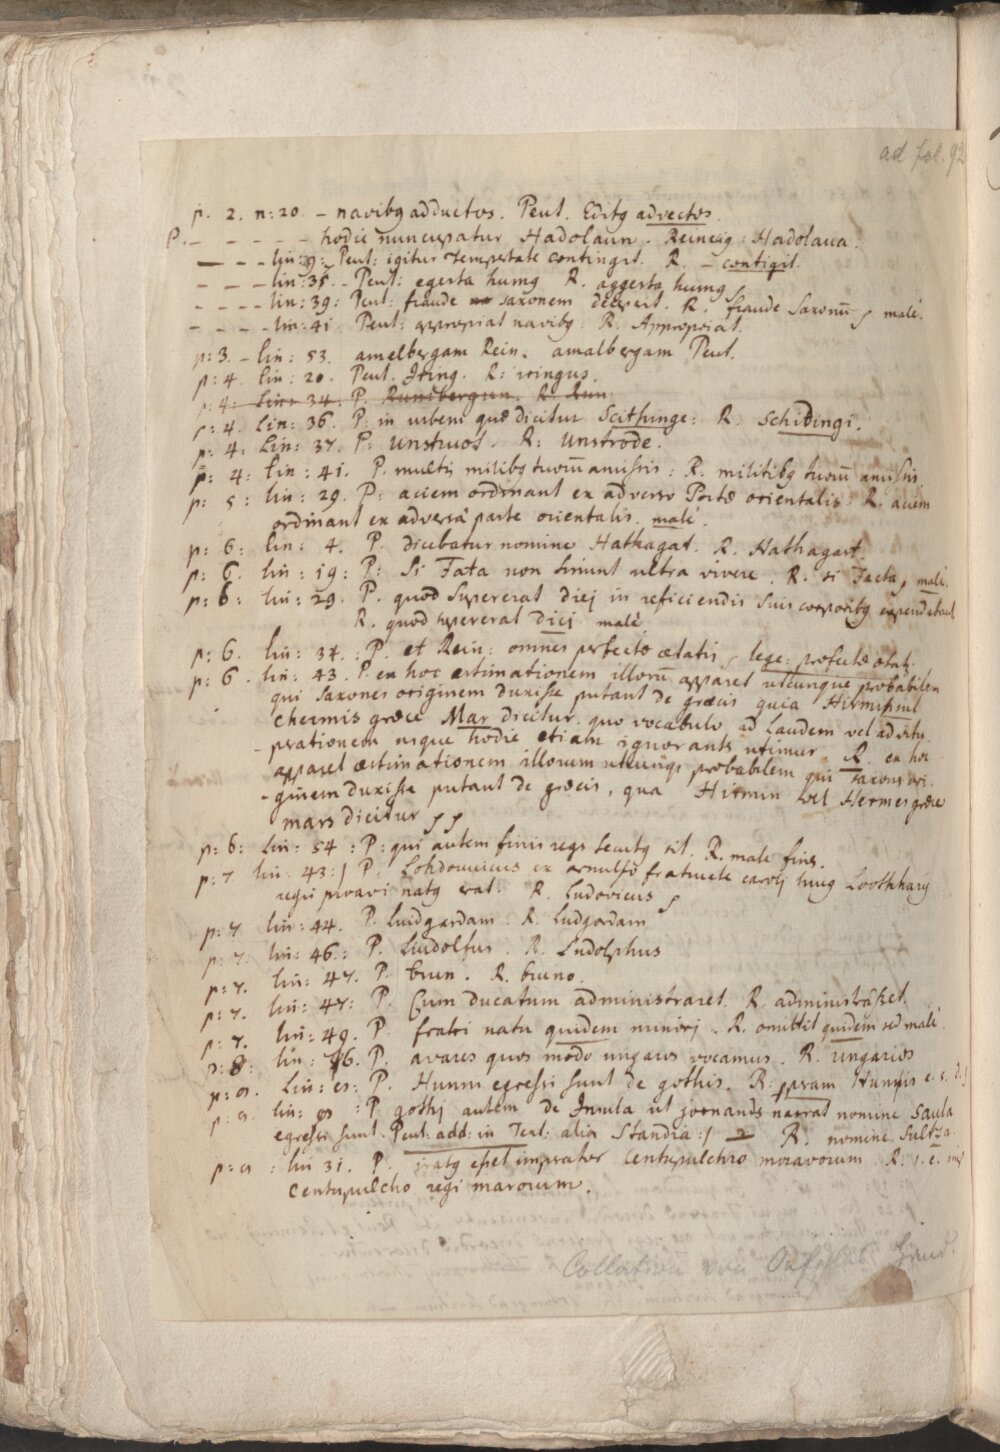 ad fol. 92
p. 2. n: 20. – navibq adductos. Peut. Editq advectos.
P. – – – – – hodie nuncupatur Hadolaun. Reineig: Hadolaua.
– – – lin: 29: Peut: igitur tempestate contingit. R. – contigit.
– – – lin: 35. – Peut: egesta humq R. aggesta humq
– – – – lin: 39: Peut: fraude saxonem decepit. R. fraude Saxonū malè.
– – – – lin: 41. Peut: appropiat navibq. R. Appropriat.
p: 3. – lin: 53. amelbergam Rein. amalbergam Peut.
p: 4. lin: 20. Peut. Iring. R: iringus.
p: 4: Lin: 34: P. Runibergun. R. Run
p: 4. Lin: 36. P: in urbem quæ dicitur Scithinge: R. Schidingi.
p: 4: Lin: 37. P: Unstruot. R: Unstrode.
p: 4: lin: 41. P. multis militbq tuorū amissis: R. militibq tuorū amissis.
p: 5: lin: 29. P: aciem ordinant ex adverso Portæ orientalis. R. aciem
ordinant ex adversa parte orientalis. malè.
p: 6: lin: 4. P. dicebatur nomine Hathagat. R. Hathagast.
p: 6. lin: 19: P: Si Fata non sinunt ultra vivere. R. si Facta, malè.
p: 6: lin: 29. P. quod supererat diej in reficiendis suis corporibq expendebant
R. quod supererat dicj malè
p: 6. lin: 34.: P. et Rein: omnes perfectæ ætatis, lege: profectæ ætatj.
p: 6. lin: 43. P. ex hoc æstimationem illorū apparet utcunque probabilem
qui Saxones originem duxisse putant de græcis quia Hirmin vel
Chermis græce Mar dicitur. quo vocabulo ad laudem vel ad vitu
– perationem usque hodie etiam ignorants utimur. R. ex hoc
apparet æstimationem illorum utcunq probabilem qui saxons ori
– ginem duxisse putant de græcis, qua Hirmin vel Hermes græce
mars dicitur
p: 6: Lin: 54: P: qui autem finis regs secutq sit. R. male fins.
p: 7. lin: 43: P. Lohdowicus ex arnulfo fratruele carolj hujq Loothharij
regis proavi natq erat. R. Ludovicus
p: 7. lin: 44. P. luidgardam: R. ludgardam
p: 7. lin: 46.: P. Liudolfus. R. Ludolphus
p: 7. lin: 47. P. brun. R. bruno.
p: 7. lin: 47: P. Cum ducatum administraret. R. administrasset.
p: 7. lin: 49. P. fratri natu quidem minorj. R. omittit quidem sed malè.
p: 8: lin: 76. P. avares quos modo ungaros vocamus. R. Ungarios
Lin: P. Hunni egressi sunt de gothis. R. Hunnis
lin: P. gothj autem de Insula ut jornands narrat nomine Saulza
egressi sunt. Peut. add: in Text: alia Standia: R. nomine Sultza.
lin 31. P. iratq esset imperator Centupulchro moravorum R: i. e. imp
Centupulcho regi marorum.
Collation von